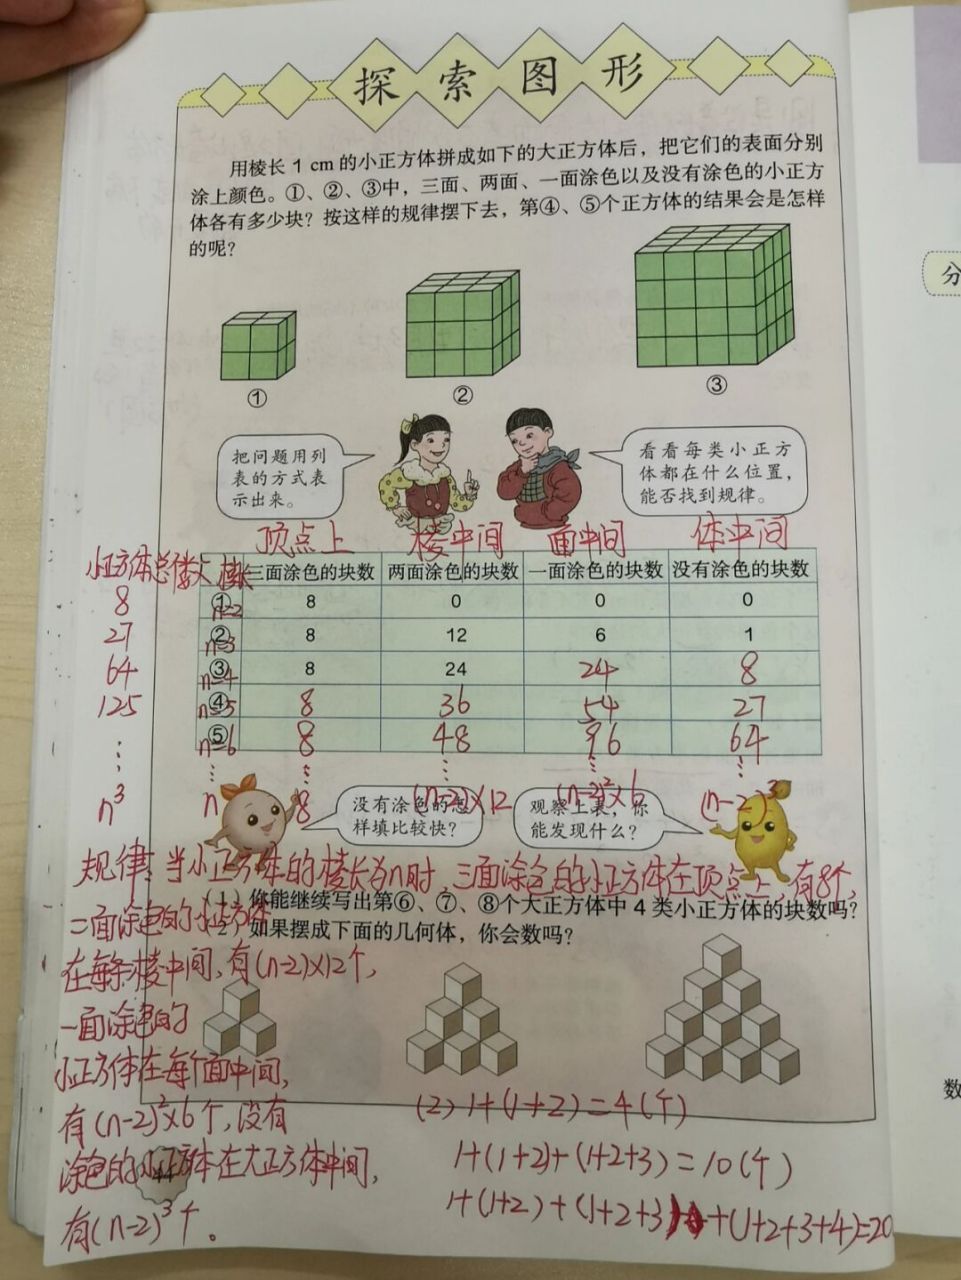 探索图形
用棱长 1 cm 的小正方体拼成如下的大正方体后，把它们的表面分别
涂上颜色。①、②、③中，三面、两面、一面涂色以及没有涂色的小正方
体各有多少块？按这样的规律摆下去，第④、⑤个正方体的结果会是怎样
的呢？
① ② ③
把问题用列
表的方式表
示出来。
看看每类小正方
体都在什么位置，
能否找到规律。
顶点上 棱中间 面中间 体中间
小正方体总 棱长 三面涂色的块数 两面涂色的块数 一面涂色的块数 没有涂色的块数
8 ① n=2 8 0 0 0
27 ② n=3 8 12 6 1
64 ③ n=4 8 24 24 8
125 ④ n=5 8 36 54 27
⑤ n=6 8 48 96 64
n³ n 8 (n-2)×12 (n-2)²×6 (n-2)³
没有涂色的怎
样填比较快？
观察上表，你
能发现什么？
规律：当小正方体的棱长为n时 三面涂色的小正方体在顶点上，有8个，
（1）你能继续写出第⑥、⑦、⑧个大正方体中 4 类小正方体的块数吗？
二面涂色的小正方体
（2）如果摆成下面的几何体，你会数吗？
在每条棱中间，有(n-2)×12个，
一面涂色的
小正方体在每个面中间，
有(n-2)²×6个，没有
涂色的小正方体在大正方体中间，
有(n-2)³个。
(2) 1+(1+2)=4(个)
1+(1+2)+(1+2+3)=10(个)
1+(1+2)+(1+2+3)+(1+2+3+4)=20
44
分
数